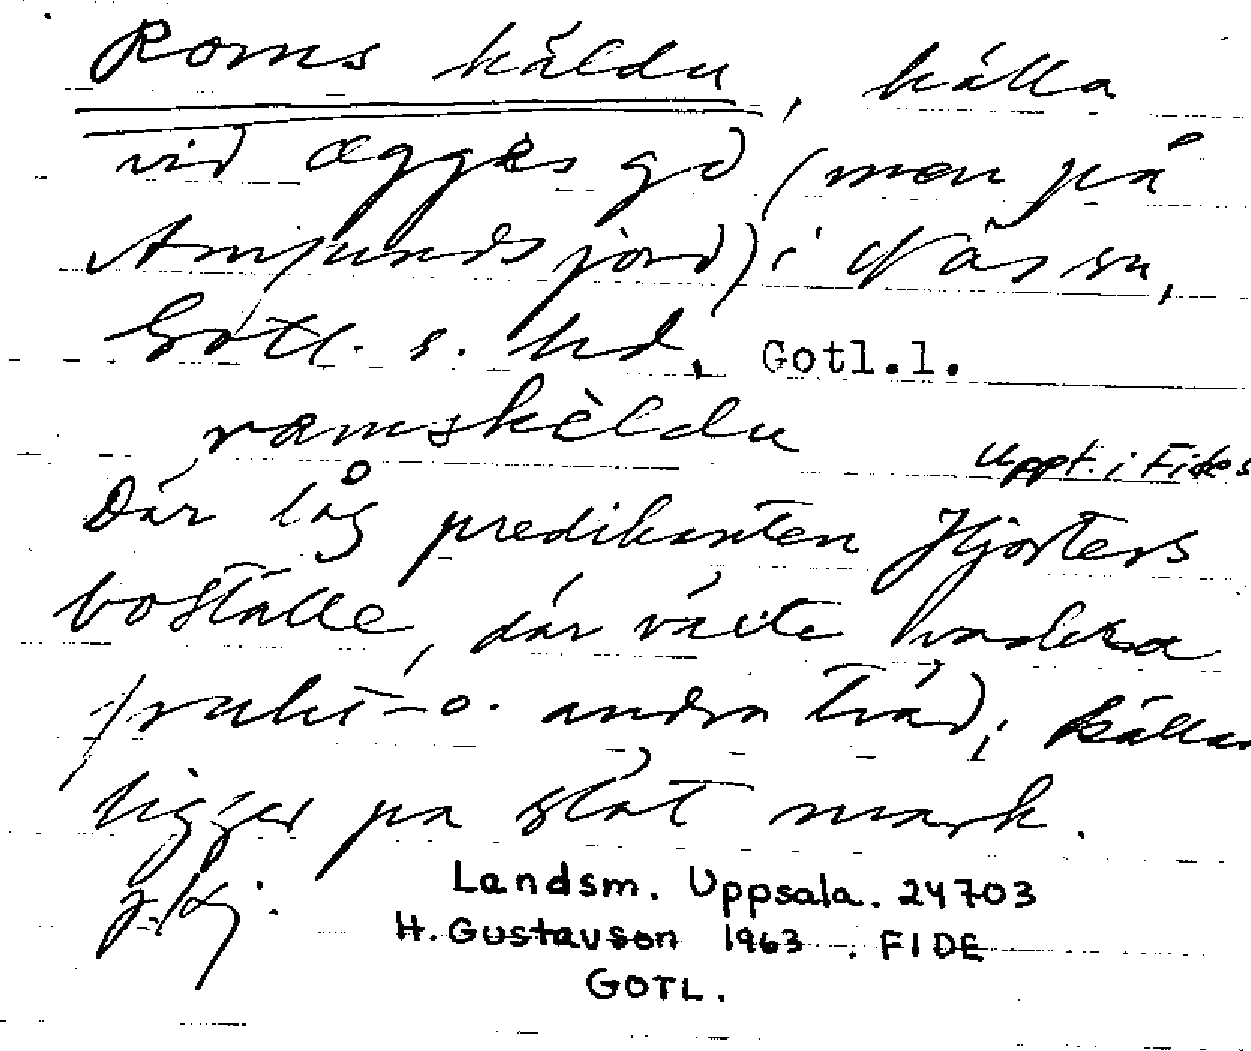 Roms käldu, källa
vid Ægges gd (men på
Amunds jord) i Näs sn,
Gotl. s. hd, Gotl.l.
ramskèldu
Uppt. i Fides
Där låg predikanten Hjorters
boställe, där växte vackra
frukt- o. andra träd; källan
ligger på slät mark.
Landsm. Uppsala. 24703
H. Gustavson 1963. FIDE
GOTL.